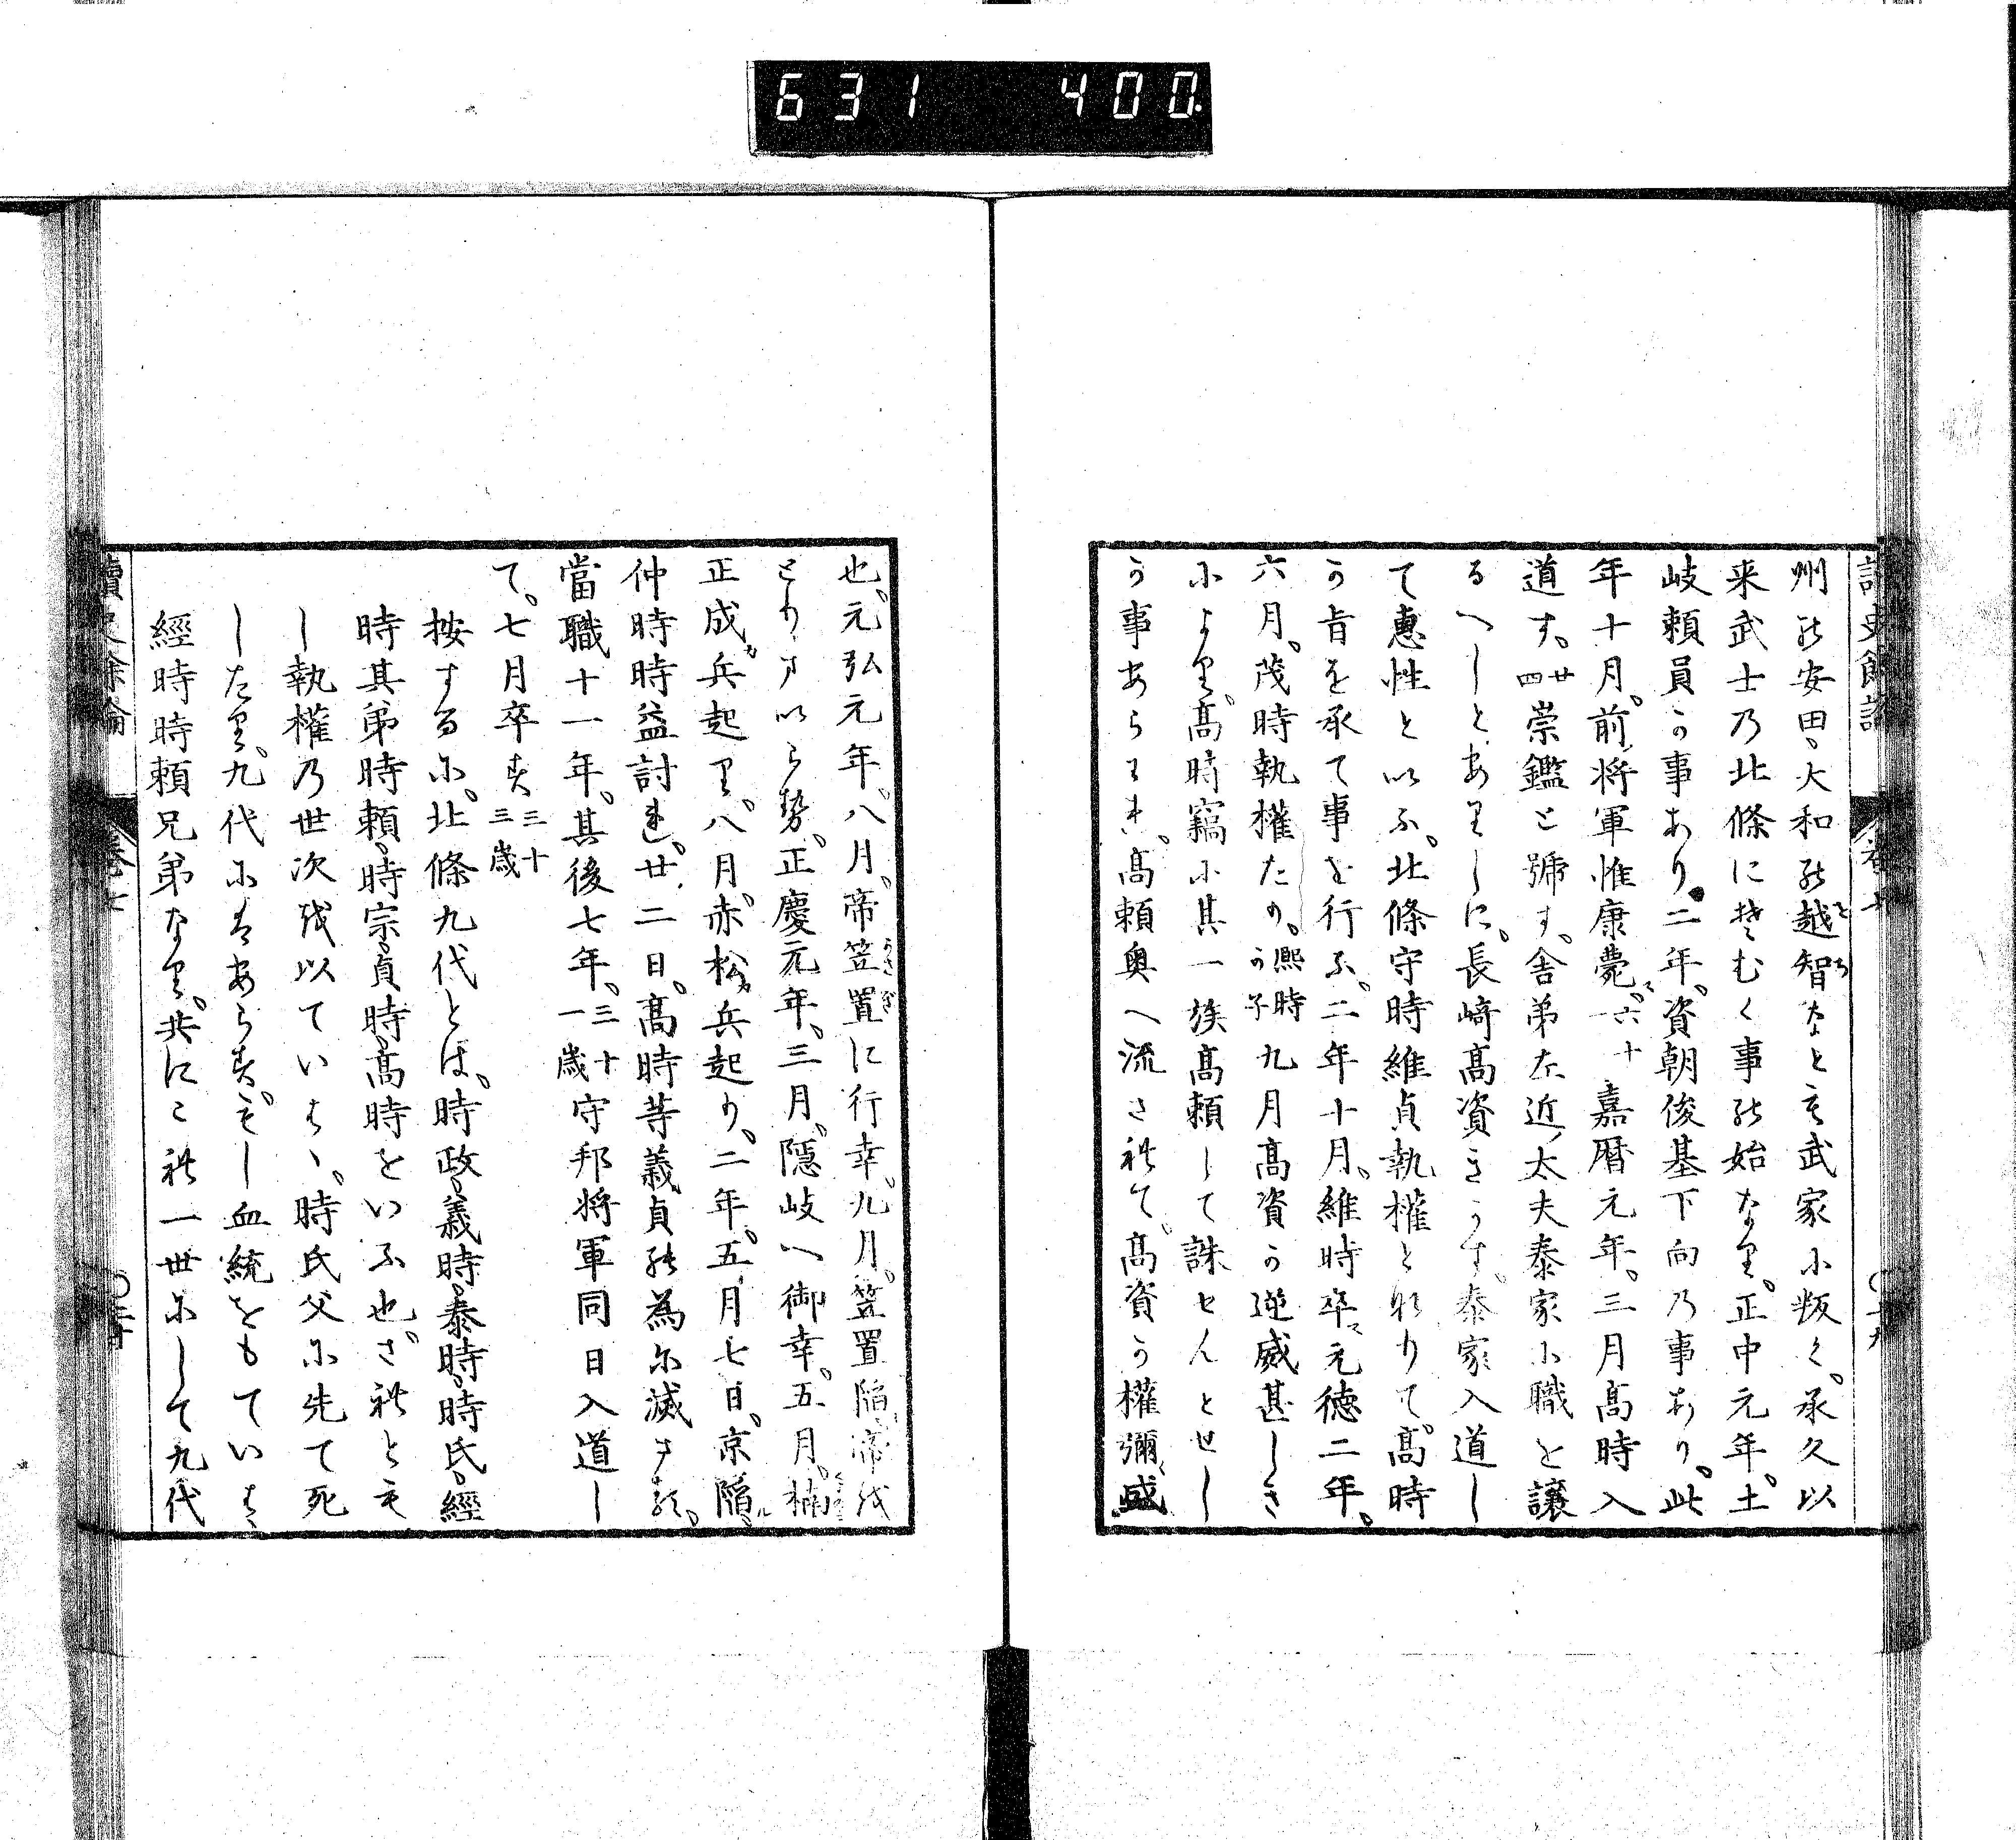 631 400.
州の安田、大和の越智なとも武家に叛く。承久以
来武士の北條にそむく事の始なり。正中元年。土
岐頼員か事あり。二年。資朝俊基下向の事あり。此
年十月。前将軍惟康薨。六十一 嘉暦元年。三月高時入
道す。廿四 崇鑑と號す。舎弟左近太夫泰家に職を譲
るへしとありしに。長﨑高資きかす。泰家入道し
て惠性といふ。北條守時維貞執權となりて。高時
か旨を承て事を行ふ。二年十月。維時卒。元徳二年。
六月。茂時執權たり。熙時か子 九月高資か逆威甚しき
によりて。高時竊に其一族高頼して誅せんとせし
か事あらはれ。高頼奥へ流されて。高資か權彌盛
也。元弘元年。八月。帝笠置に行幸。九月。笠置陥。帝を
とりまいらせ。正慶元年。三月。隠岐へ御幸。五月。楠
正成兵起り。八月。赤松兵起り。二年。五月七日。京陥。
仲時時益討れ。廿二日。高時等義貞の為に滅さる。
當職十一年。其後七年。三十一歳 守邦将軍同日入道し
て。七月卒す 三十三歳
按するに。北條九代とは。時政。義時。泰時。時氏。經
時其弟時頼。時宗。貞時。高時をいふ也。されとも
し執權の世次を以ていはゝ。時氏父に先て死
したり。九代にはあらす。もし血統をもていはゝ
經時時頼兄弟なり。共にこれ一世にして九代
讀史餘論 巻七